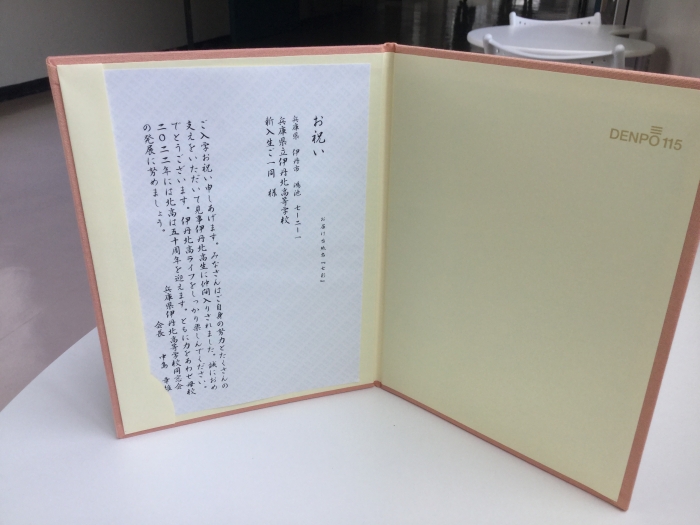 お祝い
兵庫県 伊丹市 鴻池 七ー二ー一
兵庫県立伊丹北高等学校
新入生ご一同 様
ご入学お祝い申しあげます。みなさんはご自身の努力とたくさんの
支えをいただいて見事伊丹北高生に仲間入りされました。誠におめ
でとうございます。伊丹北高ライフをしっかり楽しんでください。
二〇二二年には北高は五十周年を迎えます。ともに力をあわせ母校
の発展に努めましょう。
兵庫県伊丹北高等学校同窓会
会長 中島
DENPO 115